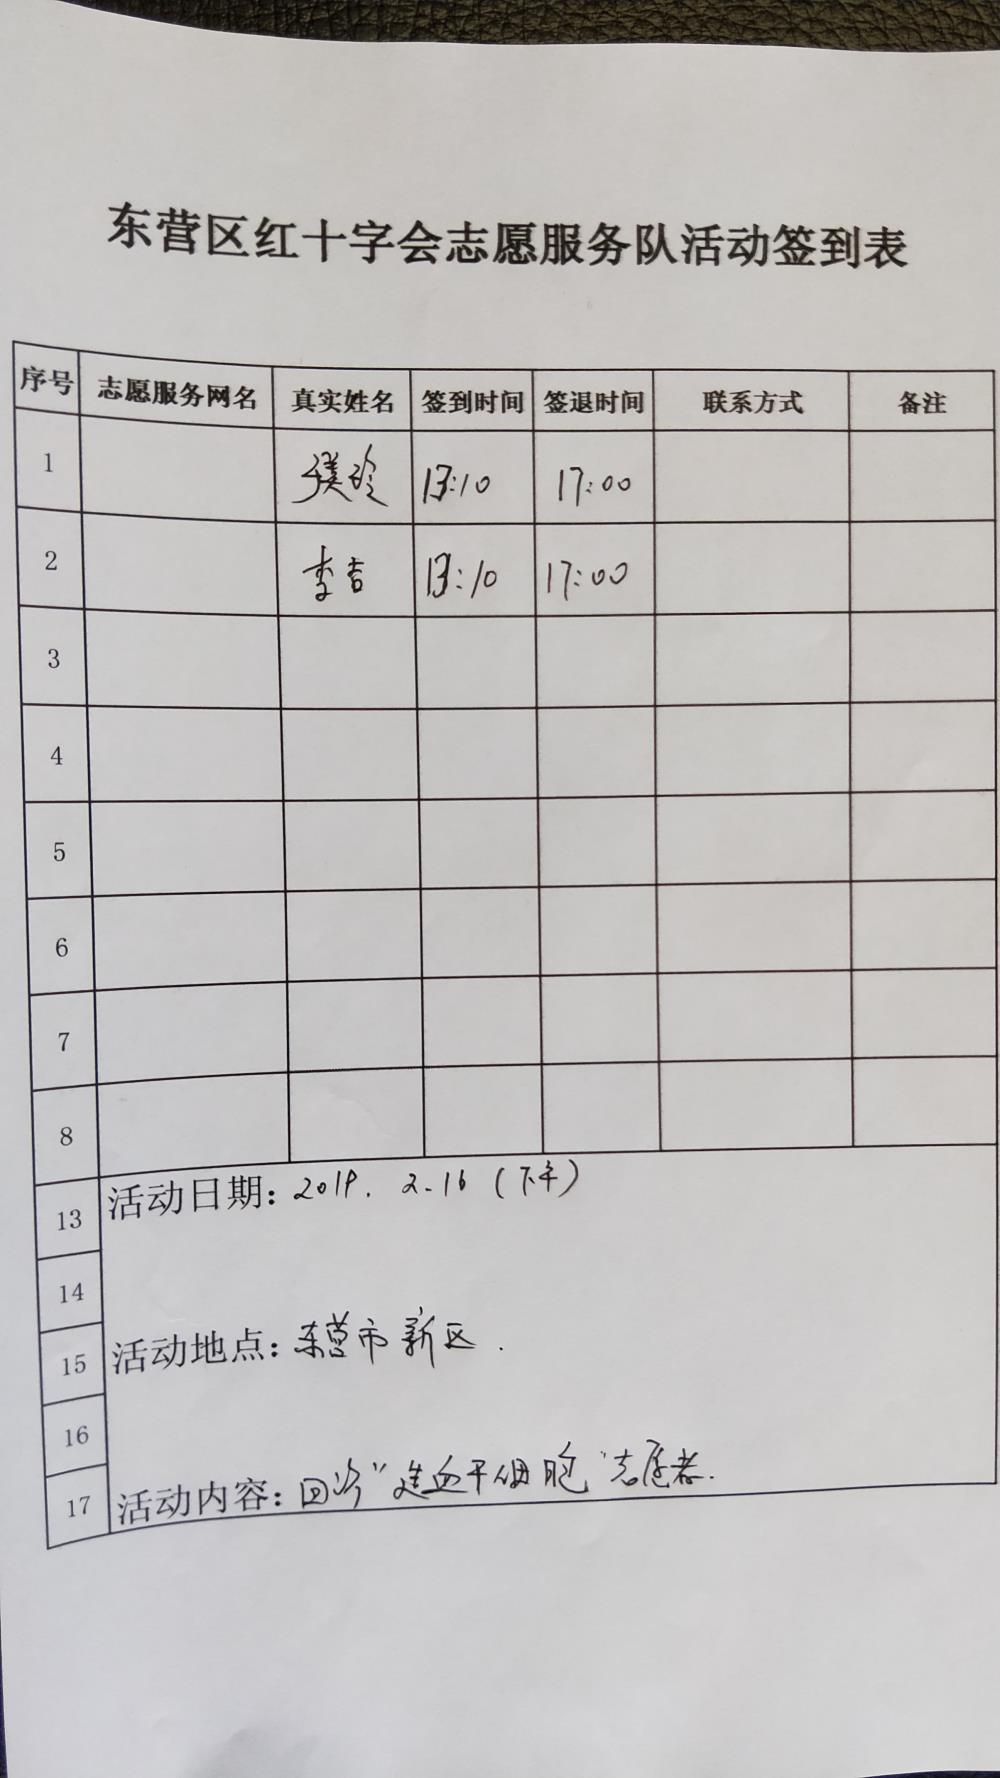 东营区红十字会志愿服务队活动签到表
序号 志愿服务网名 真实姓名 签到时间 签退时间 联系方式 备注
1 13:10 17:00
2 李吉 13:10 17:00
3
4
5
6
7
8
13 活动日期: 2019. 2.16 (下午)
14
15 活动地点: 东营市新区.
16
17 活动内容: 回访"造血干细胞"志愿者.